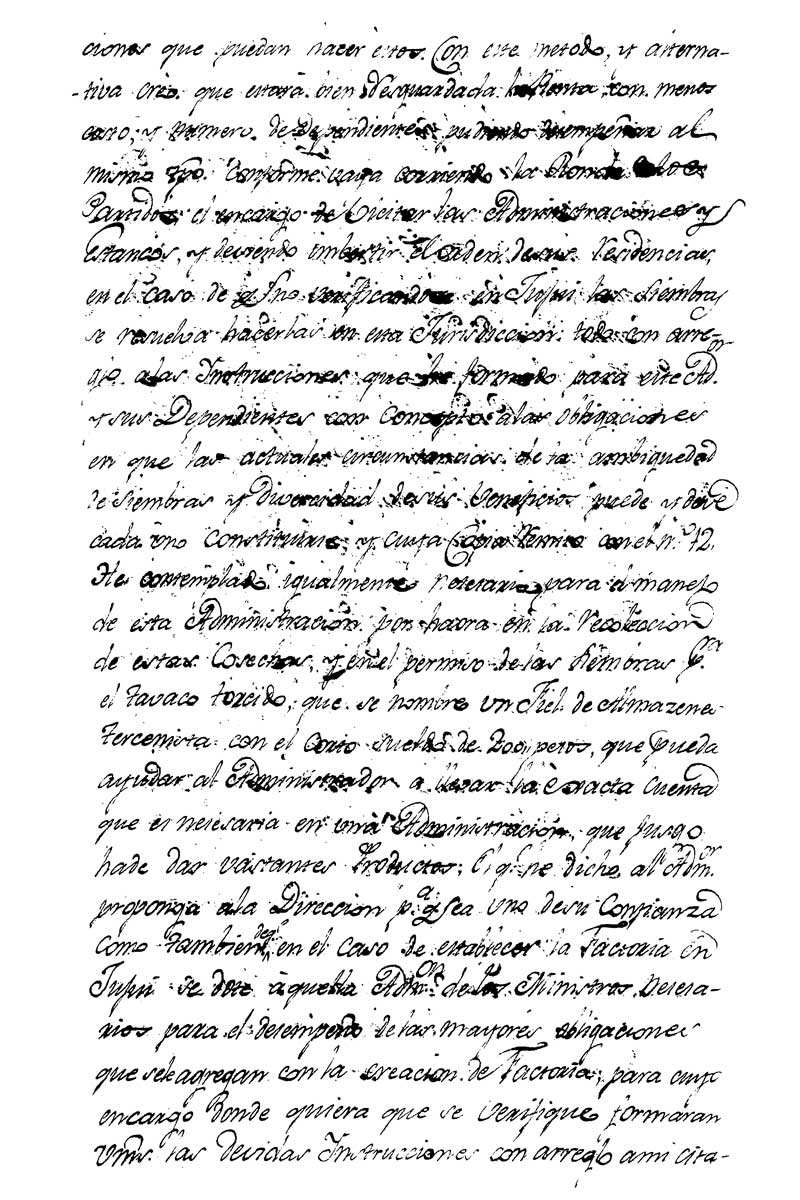 ciones que puedan hacer estos. Con este metodo, y alterna-
-tiva creo que estará bien Resguardada la Renta con menos
costo, y numero de Dependientes pudiendo desempeñar al
mismo tpo. conforme vaya corriendo la Ronda los
Partidos el encargo de Visitar las Administraciones y
Estancos, y deviendo imbertir el orden de sus residencias,
en el caso de q.e no verificandose en Tupui las siembras
se resuelva hacerlas en esta Jurisdiccion todo con arre-
glo alas Instrucciones que he formado para este Ad.or
y sus Dependientes con Concepto alas obligaciones
en que las actuales circunstancias de la ambiguedad
de siembras y Diversidad de sus beneficios puede y deve
cada uno Constituirse, y cuya Copia Remito con el n.o 12.
He contemplado igualmente necesario para el manejo
de esta Administracion por haora en la recoleccion
de estas Cosechas, y en el permiso de las siembras p.a
el tavaco torcido, que se nombre un Fiel de Almazenes
Tercenista con el corto sueldo de 200 pesos, que pueda
ayudar al Administrador a llevar la exacta Cuenta
que es necesaria en una Administración, que Jusgo
hade dar vastantes Productos; y que he dicho al Adm.or
proponga ala Direccion p.a q.e sea uno de su Confianza
como tambien en el caso de establecer la Factoria en
Tupui se dote à aquella Adm.on de los Ministros Necesa-
rios para el desempeño de las mayores obligaciones
que sele agregan con la creacion de Factoria, para cuyo
encargo Donde quiera que se verifique formaran
Vms. las devidas Instrucciones con arreglo ami cita-